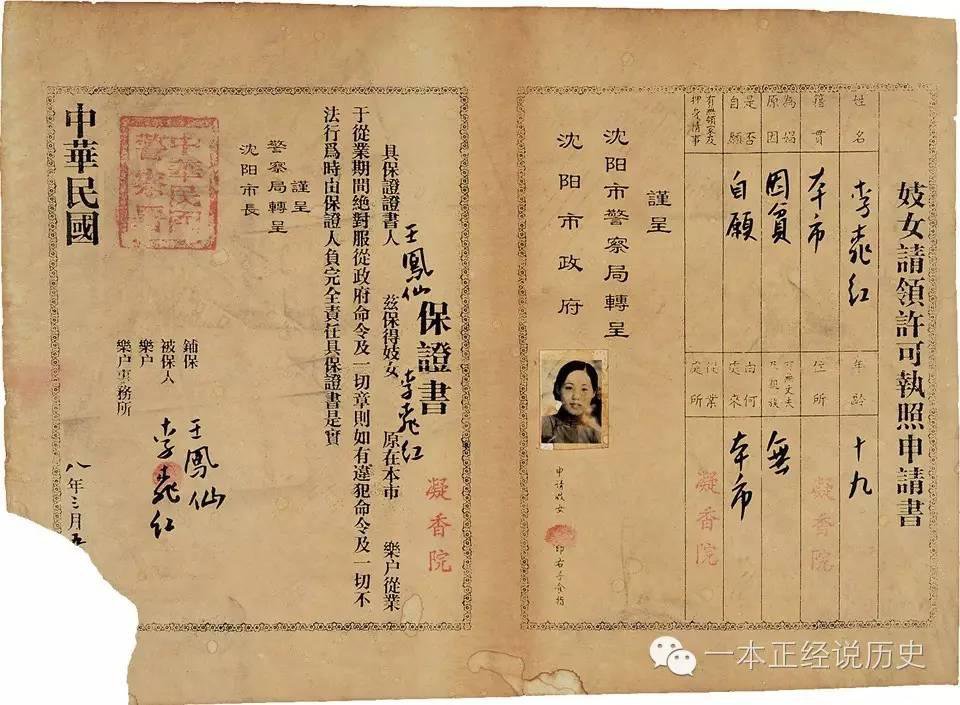 妓女請領許可執照申請書
姓名 李 红 年齡 十九
籍貫 本市 住所 凝香院
為娼原因 因貧 有無丈夫及親族 無
是否自願 自願 由何處來 本市
有無領家及押身情事 從業處所 凝香院
謹呈
沈阳市警察局轉呈
沈阳市政府
申請妓女 印右手食指
保證書
具保證證書人 王鳳仙 茲保得妓女 李 红 原在本市 凝香院 樂户從業
于從業期間絶對服從政府命令及一切章則如有違犯命令及一切不
法行爲時由保證人負完全責任具保證書是實
謹呈
警察局轉呈
沈阳市長
鋪保 王鳳仙
被保人 李 红
樂户
樂户事務所
中華民國 八年三月
中華民國
警察
一本正经说历史